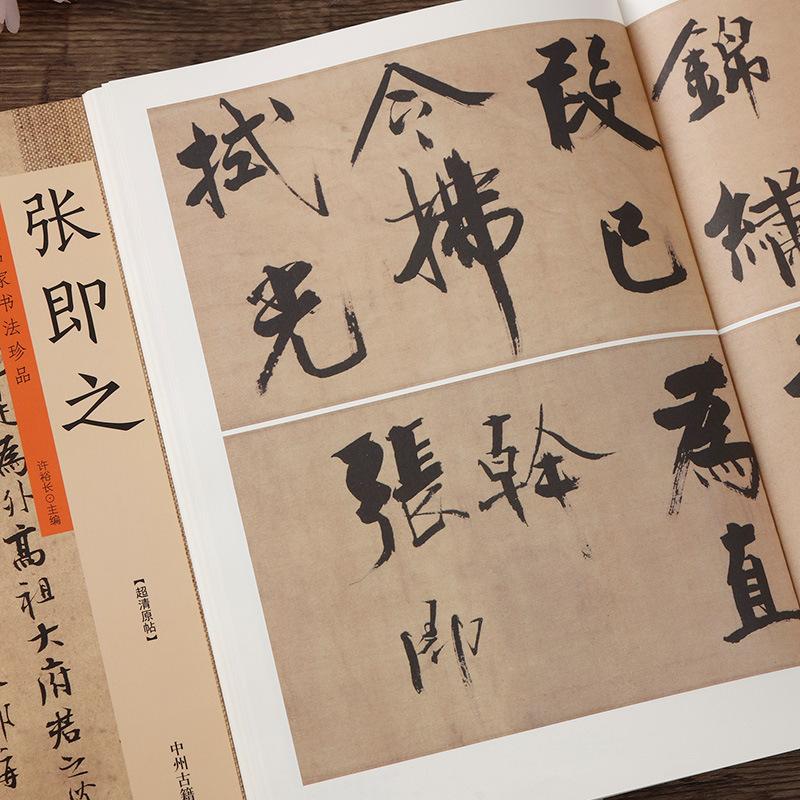 张即之
家书法珍品
许裕长⊙主编
【超清原帖】
中州古籍
為外高祖大府君之
錦繡
段已
令拂
拭光
為直
幹
張即